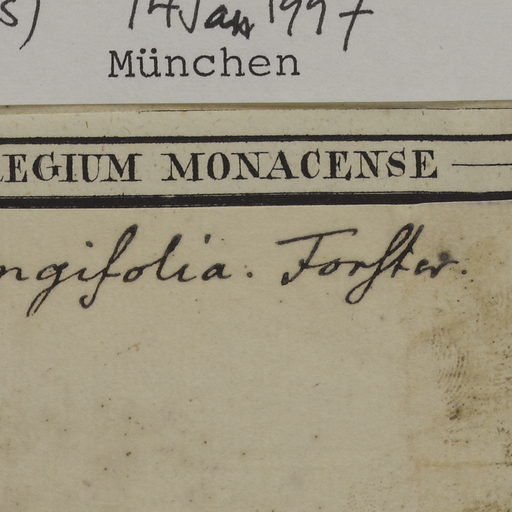 s) 14 Jan 1997
München
EGIUM MONACENSE
ngifolia. Forster.